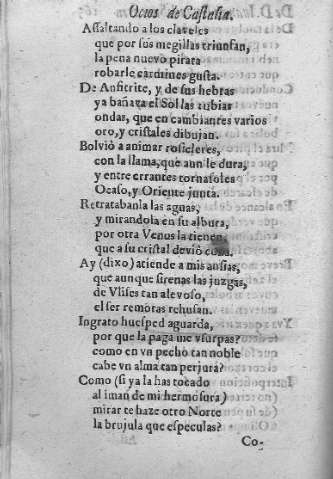 Ocios de Castalia.
Assaltando a los claveles
que por sus megillas triunfan,
la pena nuevo pirata
robarle carmines gusta.
De Anficrite, y de sus hebras
ya bañava el Sol las rubias
ondas, que en cambiantes varios
oro, y cristales dibujan.
Bolviò a animar rosicleres,
con la llama, que aun le dura,
y entre errantes tornasoles
Ocaso, y Oriente junta.
Retratabanla las aguas,
y mirandola en su albura,
por otra Venus la tienen,
que a su cristal deviò cuna.
Ay (dixo) atiende a mis ansias,
que aunque sirenas las juzgas,
de Vlises tan alevoso,
el ser remoras rehusan.
Ingrato huesped aguarda,
por que la paga me vsurpas?
como en vn pecho tan noble
cabe vn alma tan perjura?
Como (si ya la has tocado
al iman de mi hermosura)
mirar te haze otro Norte
la brujula que especulas?
Co-